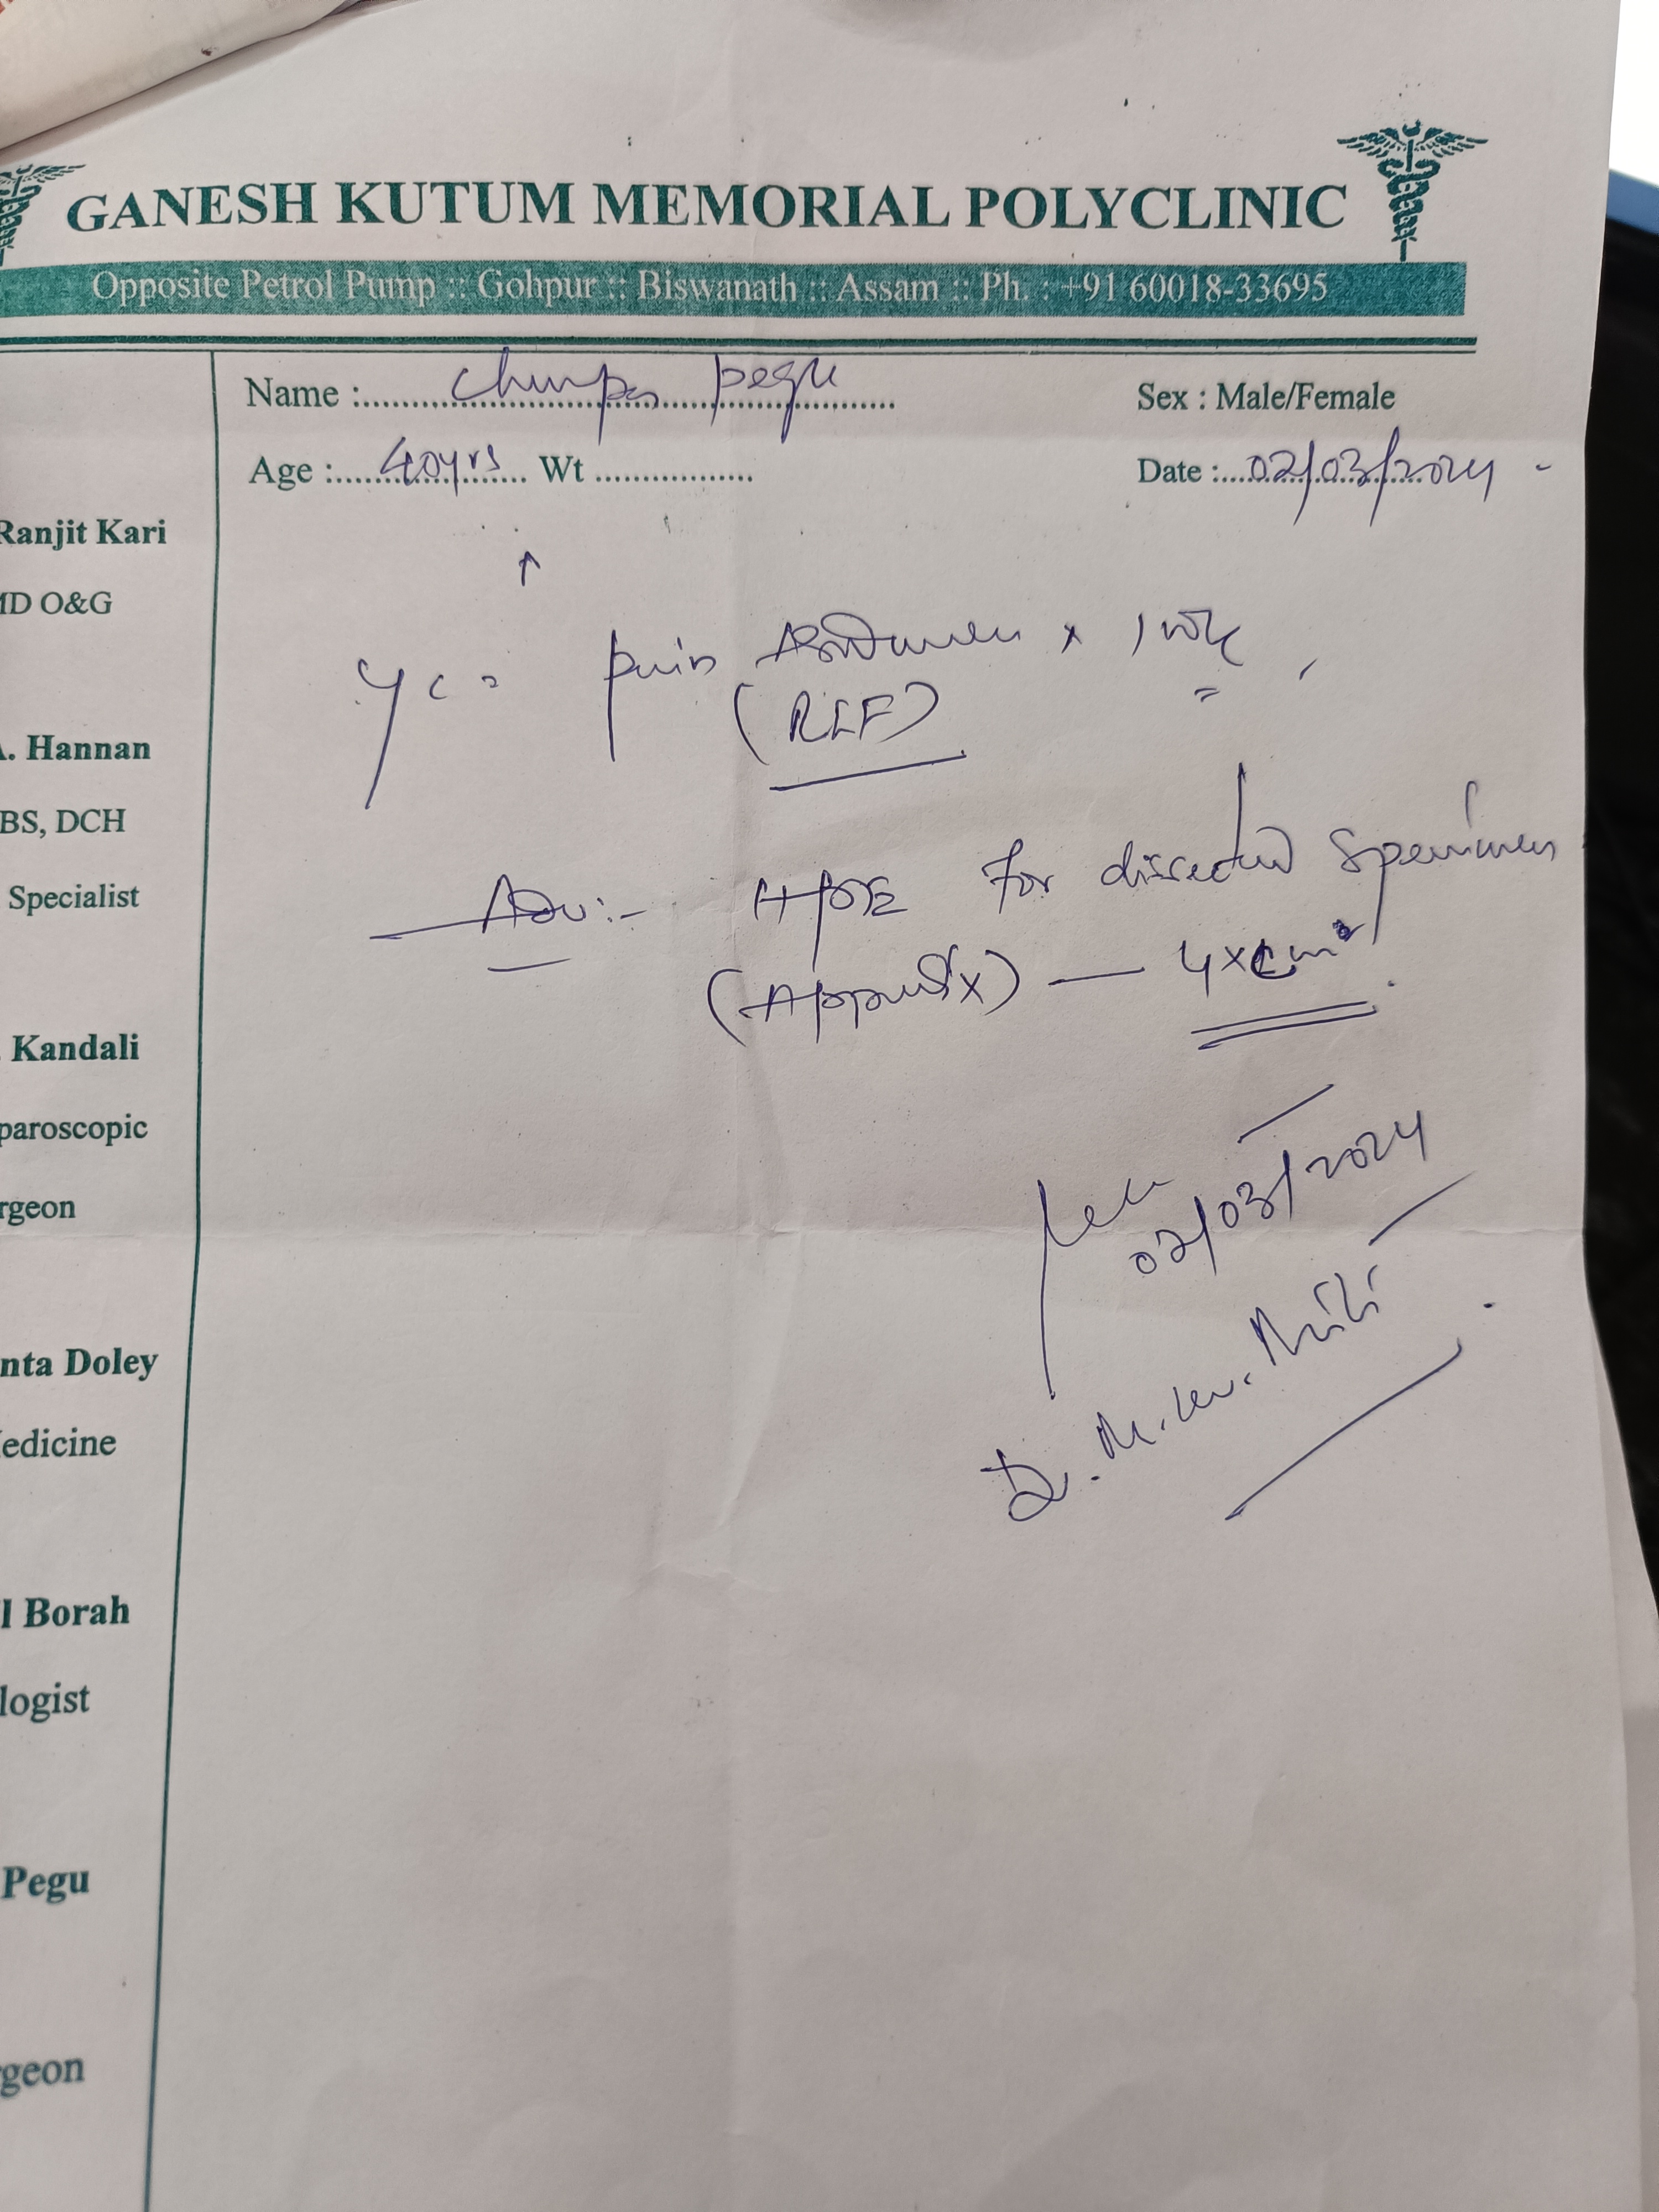 GANESH KUTUM MEMORIAL POLYCLINIC
Opposite Petrol Pump :: Gohpur :: Biswanath :: Assam :: Ph. : +91 60018-33695
Name : Pegu
Sex : Male/Female
Age : 40yrs Wt
Date : 02/03/2024
Ranjit Kari
MD O&G
A. Hannan
BS, DCH
Specialist
Kandali
paroscopic
rgeon
nta Doley
edicine
l Borah
logist
Pegu
geon
Pain Abdomen x 1 wk
(RIF)
Adv:- HPE for dissected specimen
(Appendix) — 4x cm²
02/03/2024
Dr. M. Mili